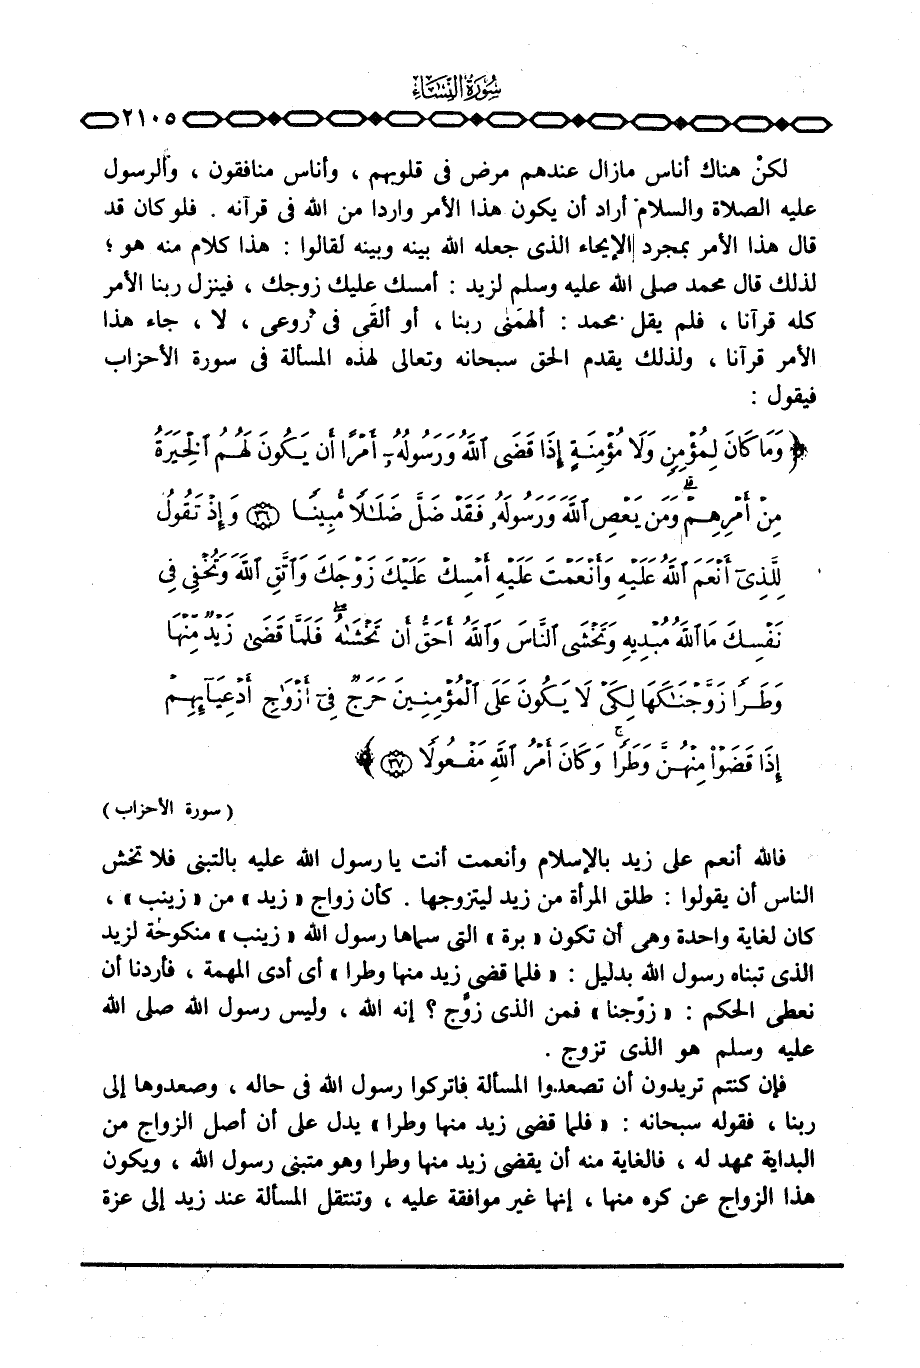 سُورَةُ النِّسَاءِ
٢١٠٥
لكنْ هناك أناس مازال عندهم مرض فى قلوبهم ، وأناس منافقون ، والرسول
عليه الصلاة والسلام أراد أن يكون هذا الأمر واردا من الله فى قرآنه . فلو كان قد
قال هذا الأمر بمجرد الإيحاء الذى جعله الله بينه وبينه لقالوا : هذا كلام منه هو ؛
لذلك قال محمد صلى الله عليه وسلم لزيد : أمسك عليك زوجك ، فينزل ربنا الأمر
كله قرآنا ، فلم يقل محمد : ألهمَنى ربنا ، أو ألقَى فى رُوعى ، لا ، جاء هذا
الأمر قرآنا ، ولذلك يقدم الحق سبحانه وتعالى لهذه المسألة فى سورة الأحزاب
فيقول :
﴿ وَمَا كَانَ لِمُؤْمِنٍ وَلَا مُؤْمِنَةٍ إِذَا قَضَى ٱللَّهُ وَرَسُولُهُۥٓ أَمْرًا أَن يَكُونَ لَهُمُ ٱلْخِيَرَةُ
مِنْ أَمْرِهِمْ ۗ وَمَن يَعْصِ ٱللَّهَ وَرَسُولَهُۥ فَقَدْ ضَلَّ ضَلَٰلًا مُّبِينًا ﴿٣٦﴾ وَإِذْ تَقُولُ
لِلَّذِىٓ أَنْعَمَ ٱللَّهُ عَلَيْهِ وَأَنْعَمْتَ عَلَيْهِ أَمْسِكْ عَلَيْكَ زَوْجَكَ وَٱتَّقِ ٱللَّهَ وَتُخْفِى فِى
نَفْسِكَ مَا ٱللَّهُ مُبْدِيهِ وَتَخْشَى ٱلنَّاسَ وَٱللَّهُ أَحَقُّ أَن تَخْشَىٰهُ ۖ فَلَمَّا قَضَىٰ زَيْدٌ مِّنْهَا
وَطَرًا زَوَّجْنَٰكَهَا لِكَىْ لَا يَكُونَ عَلَى ٱلْمُؤْمِنِينَ حَرَجٌ فِىٓ أَزْوَٰجِ أَدْعِيَآئِهِمْ
إِذَا قَضَوْا۟ مِنْهُنَّ وَطَرًا ۚ وَكَانَ أَمْرُ ٱللَّهِ مَفْعُولًا ﴿٣٧﴾ ﴾
( سورة الأحزاب )
فالله أنعم على زيد بالإسلام وأنعمت أنت يا رسول الله عليه بالتبنى فلا تخش
الناس أن يقولوا : طلق المرأة من زيد ليتزوجها . كأن زواج « زيد » من « زينب » ،
كان لغاية واحدة وهى أن تكون « برة » التى سماها رسول الله « زينب » منكوحة لزيد
الذى تبناه رسول الله بدليل : « فلما قضى زيد منها وطرا » أى أدى المهمة ، فأردنا أن
نعطى الحكم : « زوّجنا » فمن الذى زوَّج ؟ إنه الله ، وليس رسول الله صلى الله
عليه وسلم هو الذى تزوج .
فإن كنتم تريدون أن تصعدوا المسألة فاتركوا رسول الله فى حاله ، وصعدوها إلى
ربنا ، فقوله سبحانه : « فلما قضى زيد منها وطرا » يدل على أن أصل الزواج من
البداية ممهد له ، فالغاية منه أن يقضى زيد منها وطرا وهو متبنى رسول الله ، ويكون
هذا الزواج عن كره منها ، إنها غير موافقة عليه ، وتنتقل المسألة عند زيد إلى عزة